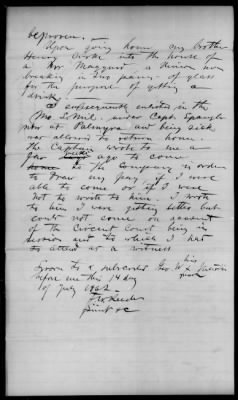 Upon going home my brother
Henry broke into the house of
a Mr Maggard a Union man
breaking in two panes of glass
for the purpose of getting a
drink.
I subsequently enlisted in the
Mo. S. Mil. under Capt.
now at Palmyra and being sick
was allowed to return home.
the Captain wrote to me a
few weeks ago to come
to the Company in order
to draw my pay if I were
able to come or if I were
not to write to him. I wrote
to him I was getting better but
could not come on account
of the Circuit court being in
session and to which I had
to attend as a witness
Sworn to & subscribed Geo. W. his x mark
before me this 14 day
of July 1862